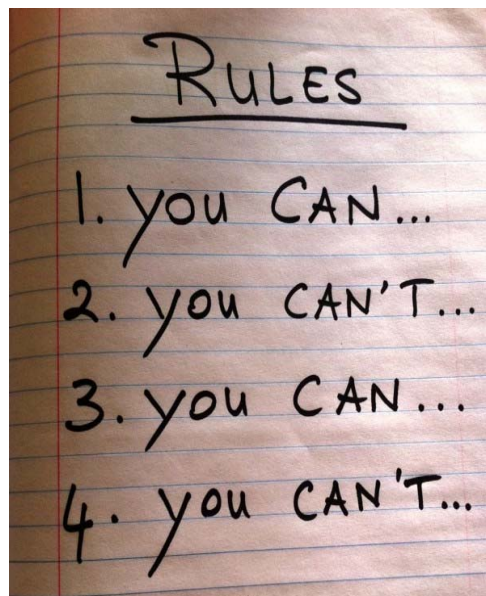 RULES
1. you CAN...
2. you CAN'T...
3. you CAN...
4. you CAN'T...